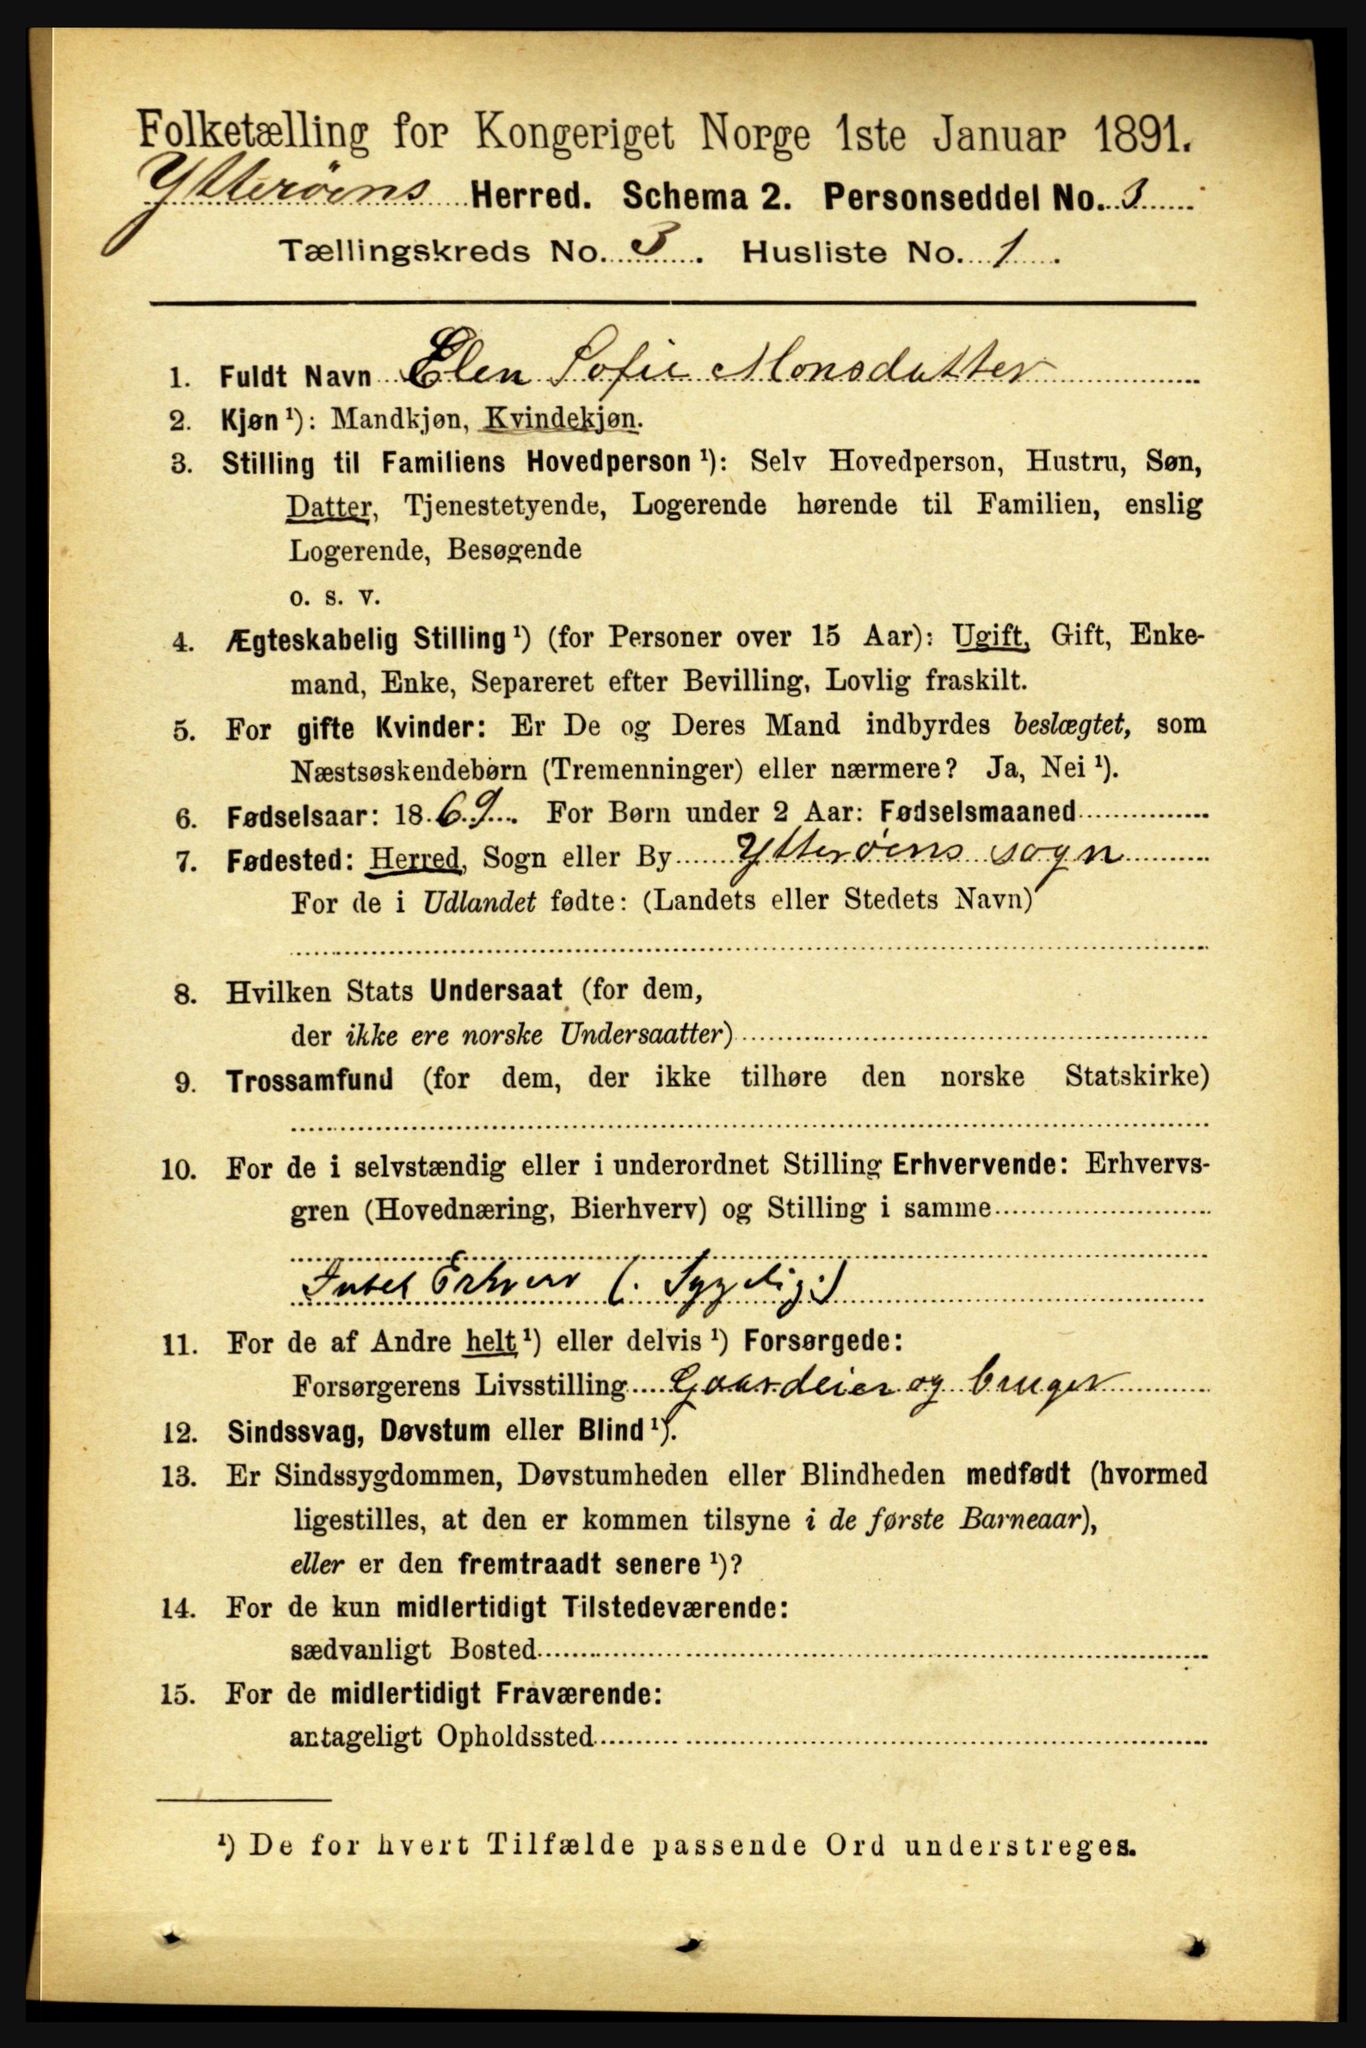 Folketælling for Kongeriget Norge 1ste Januar 1891.
Ytterøens Herred. Schema 2. Personseddel No. 3
Tællingskreds No. 3. Husliste No. 1.
1. Fuldt Navn Elen Sofie Monsdatter
2. Kjøn¹): Mandkjøn, Kvindekjøn.
3. Stilling til Familiens Hovedperson¹): Selv Hovedperson, Hustru, Søn,
Datter, Tjenestetyende, Logerende hørende til Familien, enslig
Logerende, Besøgende
o. s. v.
4. Ægteskabelig Stilling¹) (for Personer over 15 Aar): Ugift, Gift, Enke-
mand, Enke, Separeret efter Bevilling, Lovlig fraskilt.
5. For gifte Kvinder: Er De og Deres Mand indbyrdes beslægtet, som
Næstsøskendebørn (Tremenninger) eller nærmere? Ja, Nei¹).
6. Fødselsaar: 1869. For Børn under 2 Aar: Fødselsmaaned
7. Fødested: Herred, Sogn eller By Ytterøens sogn
For de i Udlandet fødte: (Landets eller Stedets Navn)
8. Hvilken Stats Undersaat (for dem,
der ikke ere norske Undersaatter)
9. Trossamfund (for dem, der ikke tilhøre den norske Statskirke)
10. For de i selvstændig eller i underordnet Stilling Erhvervende: Erhvervs-
gren (Hovednæring, Bierhverv) og Stilling i samme
Intet Erhverv (: Sygelig:)
11. For de af Andre helt¹) eller delvis¹) Forsørgede:
Forsørgerens Livsstilling Gaardeier og bruger
12. Sindssvag, Døvstum eller Blind¹).
13. Er Sindssygdommen, Døvstumheden eller Blindheden medfødt (hvormed
ligestilles, at den er kommen tilsyne i de første Barneaar),
eller er den fremtraadt senere¹)?
14. For de kun midlertidigt Tilstedeværende:
sædvanligt Bosted
15. For de midlertidigt Fraværende:
antageligt Opholdssted
¹) De for hvert Tilfælde passende Ord understreges.